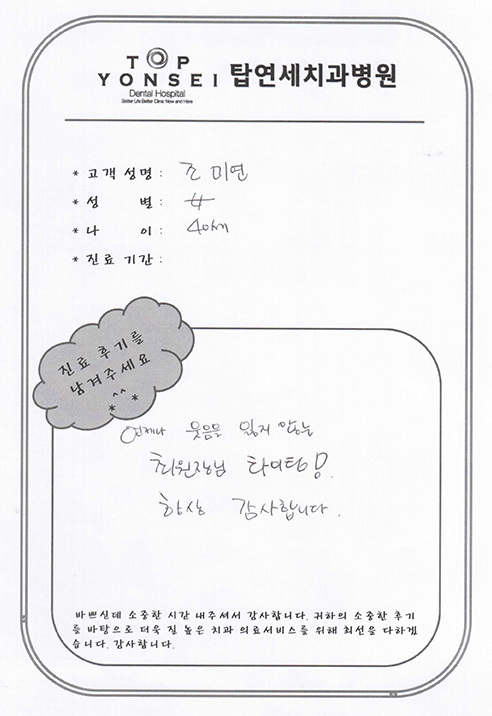 TOP
YONSEI 탑연세치과병원
Dental Hospital
Better Life Better Clinic Now and Here
* 고객 성명 : 조 미연
* 성 별 : 女
* 나 이 : 40세
* 진료 기간 :
진료 후기를
남겨주세요
^^
* *
언제나 웃음을 잃지 않는
최원장님 화이팅!
항상 감사합니다.
바쁘신데 소중한 시간 내주셔서 감사합니다. 귀하의 소중한 후기
를 바탕으로 더욱 질 높은 치과 의료서비스를 위해 최선을 다하겠
습니다. 감사합니다.